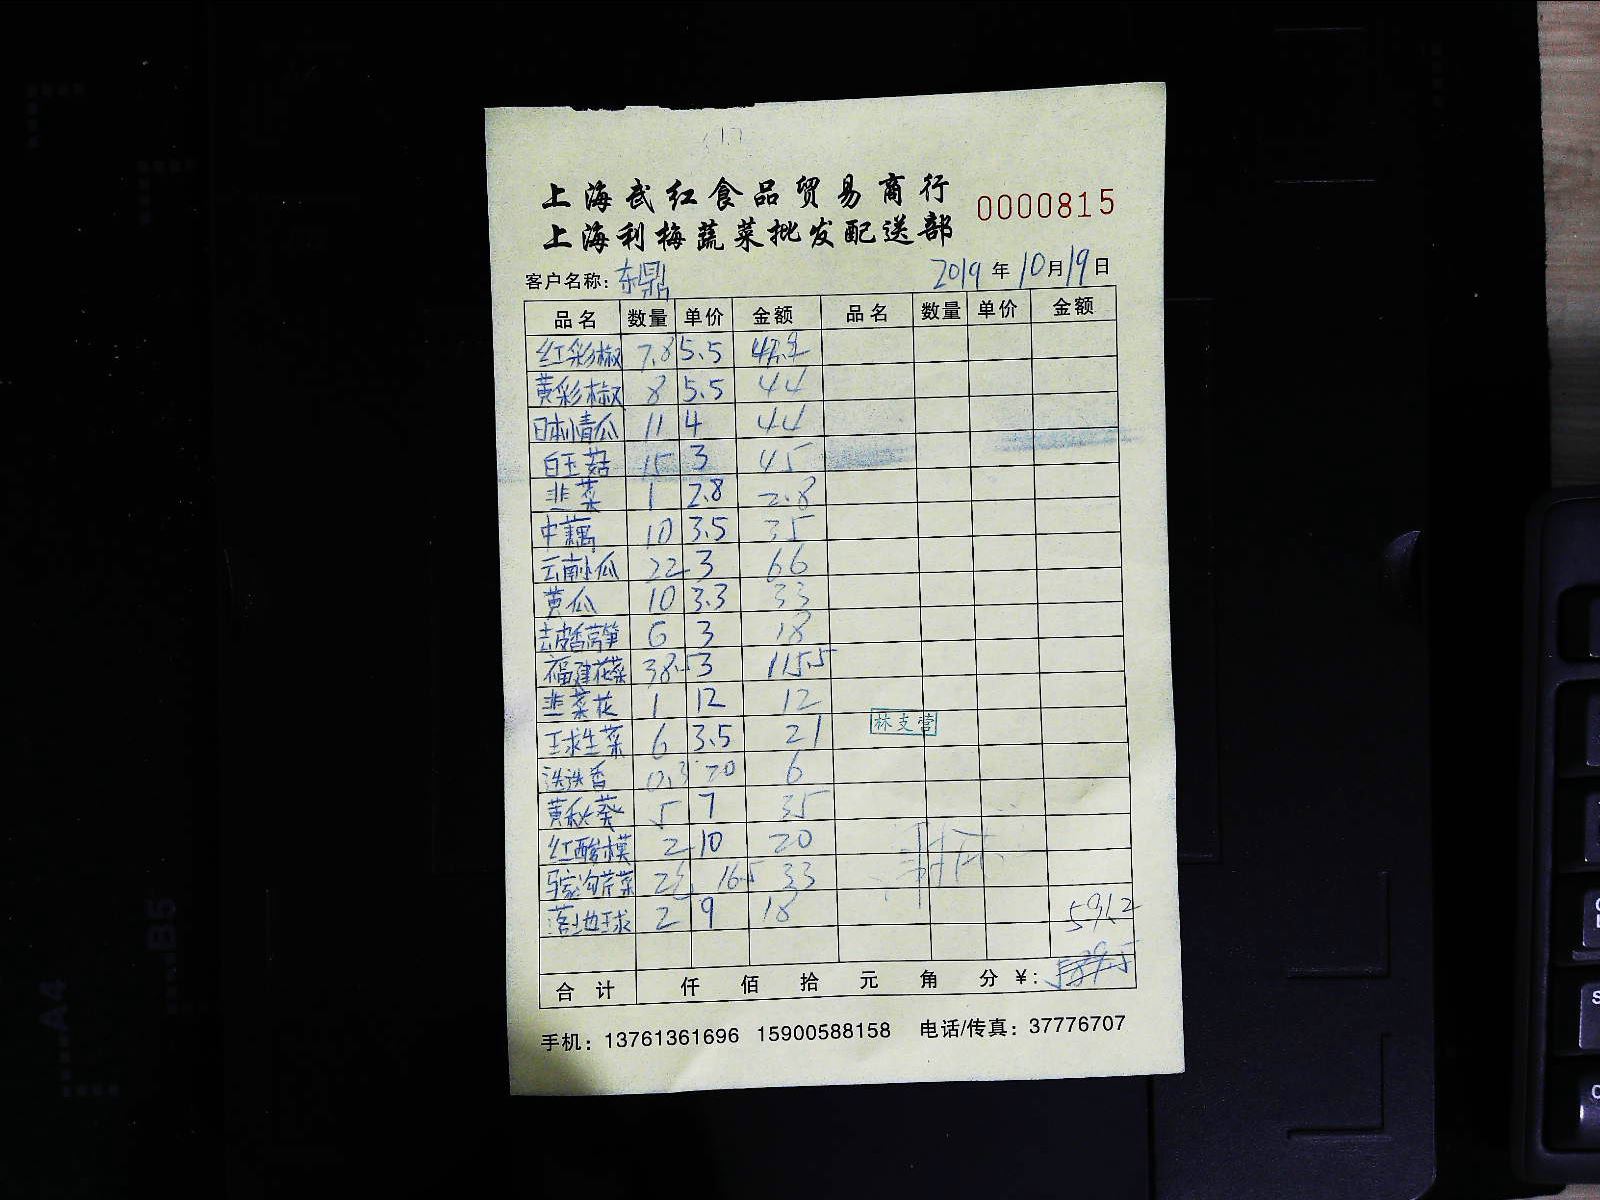 上海武红食品贸易商行
0000815
上海利梅蔬菜批发配送部
客户名称：东鼎 2019年10月19日
品名 数量 单价 金额 品名 数量 单价 金额
红彩椒 7.8 5.5
黄彩椒 8 5.5 44
日本青瓜 11 4 44
白玉菇 15 3 45
韭菜 1 2.8 2.8
中藕 10 3.5 35
云南小瓜 22 3 66
黄瓜 10 3.3 33
去皮香莴笋 6 3 18
福建花菜 38.5 3 115.5
韭菜花 1 12 12
林支营
球生菜 6 3.5 21
迷迭香 0.3 20 6
黄秋葵 5 7 35
红酸模 2 10 20
马家沟芹菜 16.5 33
落地球 2 9 18
591.2
合计 仟 佰 拾 元 角 分 ¥: 589.5
手机：13761361696 15900588158 电话/传真：37776707